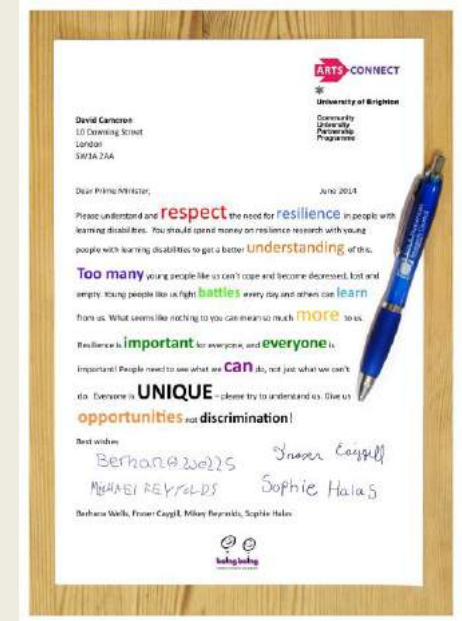 ARTS CONNECT
University of Brighton
Community
University
Partnership
Programme
David Cameron
10 Downing Street
London
SW1A 2AA
Dear Prime Minister, June 2014
Please understand and respect the need for resilience in people with
learning disabilities. You should spend money on resilience research with young
people with learning disabilities to get a better understanding of this.
Too many young people like us can't cope and become depressed, lost and
empty. Young people like us fight battles every day and others can learn
from us. What seems like nothing to you can mean so much more to us.
Resilience is important for everyone, and everyone is
important! People need to see what we can do, not just what we can't
do. Everyone is UNIQUE – please try to understand us. Give us
opportunities not discrimination!
Best wishes
Berhana Wells Fraser Caygill
MICHAEL REYNOLDS Sophie Halas
Berhana Wells, Fraser Caygill, Mikey Reynolds, Sophie Halas